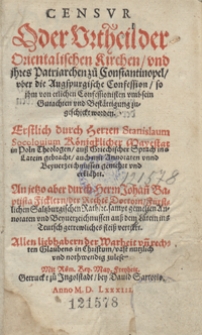 CENSVR
Oder Vrtheil der
Orientalischen Kirchen/ vnd
ihres Patriarchen zů Constantinopel/
vber die Augspurgische Confession/ so
ihm von etlichen Confessionisten vmb sein
Gutachten vnd Bestättigung zu-
geschickt worden.
Erstlich durch Herren Stanislaum
Socolouium Königklicher Mayestat
in Poln Theologen/ auß Griechischer Sprach ins
Latein gebracht/ auch mit Annotaten vnnd
gemehrt vnd
erklährt.
121578
An jetzo aber durch Herrn Johañ Ba-
ptista Ficklern/ der Rechte Doctorn/ Fürst-
lichen Saltzburgischen Rath/ sampt gemelten An-
notaten vnd auß dem Latein ins
Teutsch getrewliches fleiß versetzt.
Allen liebhabern der Warheit vñ rech-
ten Glaubens in Christum/ vast nutzlich
vnd nothwendig zulesen.
Mit Röm. Key. May. Freyheit.
Getruckt zů Ingolstadt/ bey Dauid Sartorio.
ANNO M. D.
121578